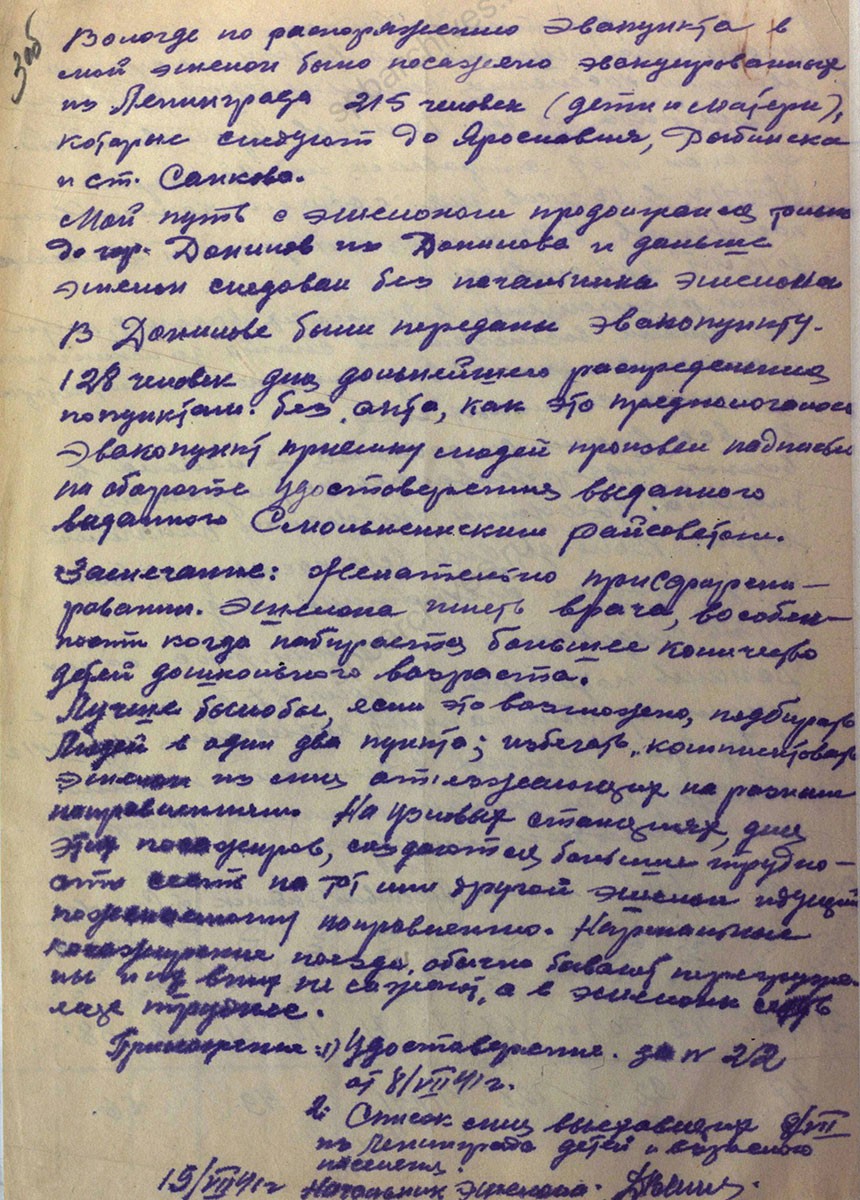 3об
Вологде по распоряжению Эвапункта в
мой эшелон было посажено эвакуированных
из Ленинграда 215 человек (дети и матери),
которые следуют до Ярославля, Рыбинска
и ст. Санкова.
Мой путь с эшелоном продолжался только
до гор. Данилов из Данилова и дальше
эшелон следовал без начальника эшелона
В Данилове были переданы эвакопункту.
128 человек для дальнейшего распределения
по пунктам. без акта, как это предпологалось
Эвакопункт приемку людей произвел надписью
на обороте удостоверения выданного
выданного Смольнинским райсоветом.
Замечание: Желательно при сформи-
ровании. эшелона иметь врача, в особен-
ности когда набирается большее количество
детей дошкольного возраста.
Лучше было бы, если это возможно, подбирать
людей в один два пункта; избегать комплектовать
эшелон из лиц отъезжающих по разным
направлениям На узловых станциях, для
этих пассажиров, создаются большие трудно-
сти сесть на тот или другой эшелон идущий
направлению. Нормальные
поезда, обычно бывают перегруже-
ны и в них не сажают, а в эшелоны сесть
еще труднее.
Приложение: 1) Удостоверение. за N 22
от 8/VII 41 г.
2. Список лиц выехавших 8/VII
из Ленинграда детей и взрослого
населения.
15/VII 41 г Начальник эшелона.